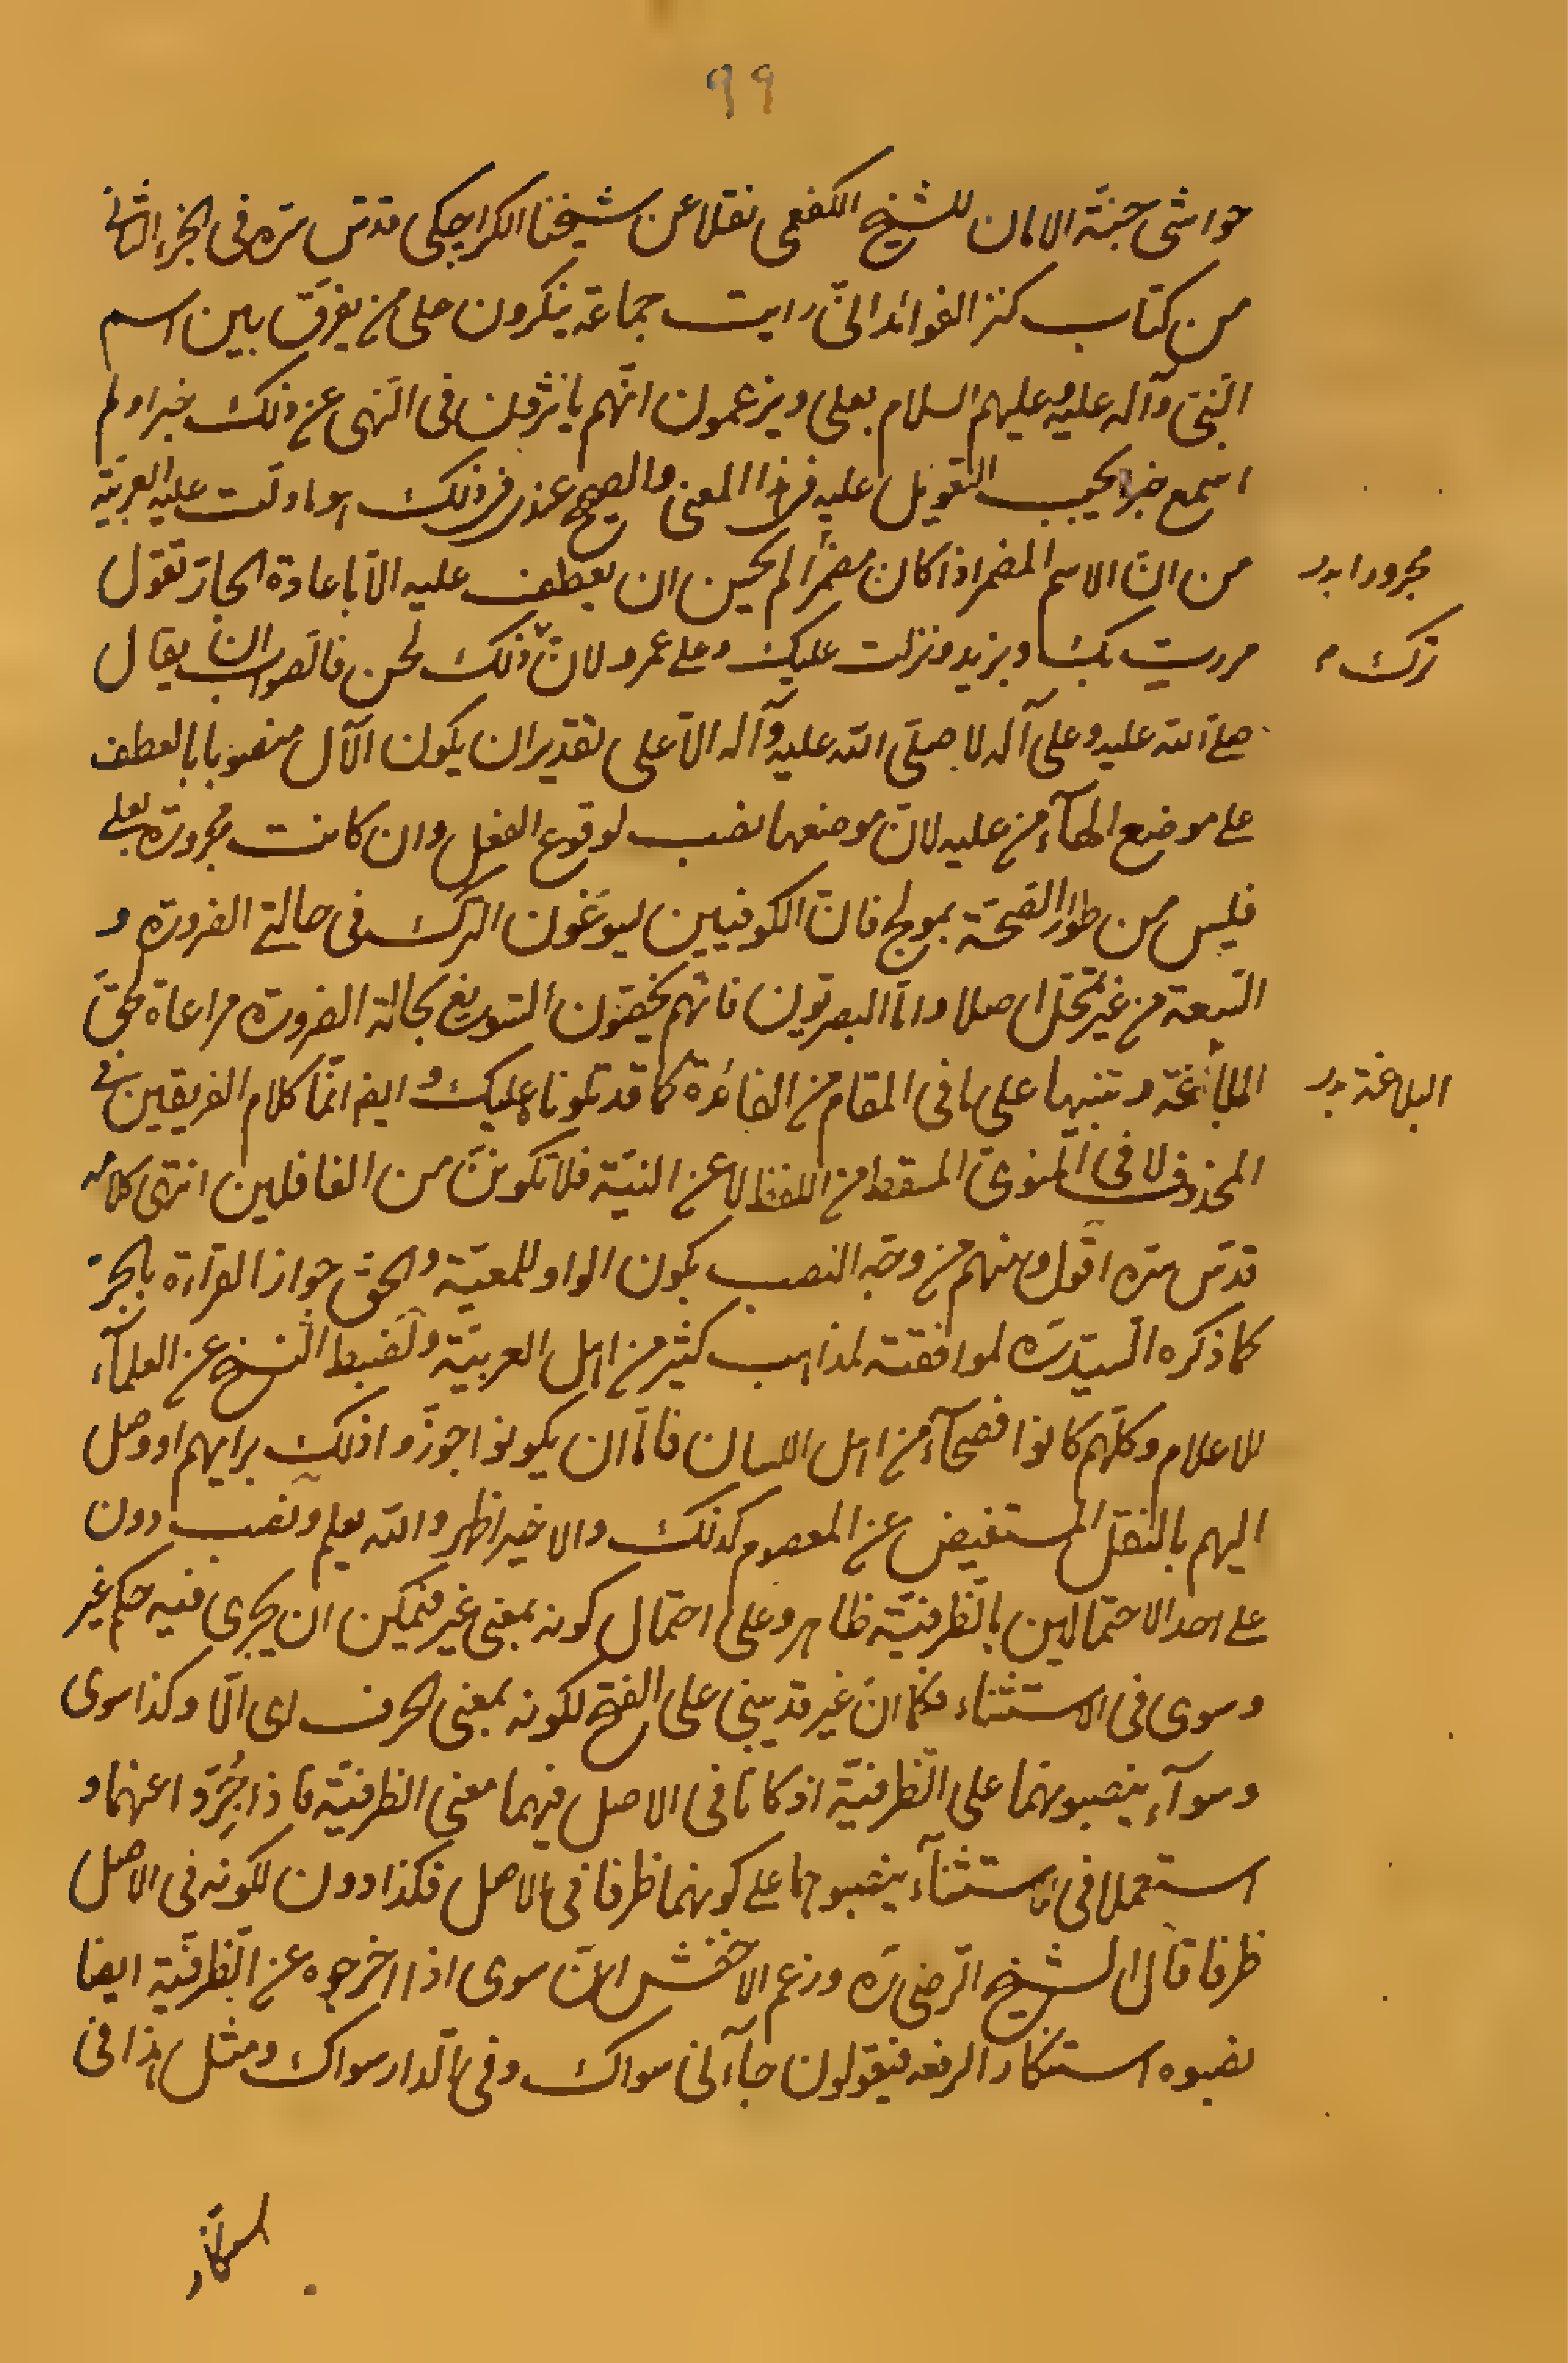 ٩٩
حواشى جنّة الامان للشيخ الكفعمى نقلا عن شيخنا الكراجكى قدّس سّره فى الجزء الثانى
من كتاب كنز الفوائد انّى رايت جماعة ينكرون على من يفرّق بين اسم
النّبىّ وآله عليه وعليهم السلام بعلى ويزعمون انّهم ياثرون فى النّهى عن ذلك خبرا ولم
اسمع خبرا يجب التعويل عليه فى هذا المعنى والصحيح عندى فى ذلك هو ما دلّت عليه العربيّة
من انّ الاسم المضمر اذا كان مضمرا لم يحسن ان يعطف عليه الّا باعادة الجارّ تقول
مجرورا بدر
مررت بك وبزيد ونزلت عليك وعلى عمرو لانّ ذلك لحن فالصواب ان يقال
ترك م
صلّى اللّه عليه وعلى آله لا صلّى اللّه عليه وآله الّا على تقدير ان يكون الآل منصوبا بالعطف
على موضع الهآء من عليه لانّ موضعها نصب لوقوع الفعل وان كانت مجرورة بعلى
فليس من طوار الصّحّة بمولج فانّ الكوفيين ليسوّغون الترك فى حالتى الضرورة و
السّعة من غير تمحّل اصلا وامّا البصريّون فانّهم يخصّون التسويغ بحالة الضرورة مراعاة لحقّ
المبالغة وتنبيها على ما فى المقام من الفائدة كما قد تلوناه عليك وايضا انّما كلام الفريقين فى
البلاغة بدر
المحذوف لا فى المنوىّ المسقط من اللفظ لا عن النيّة فلا تكوننّ من الغافلين انتهى كلامه
قدّس سّره اقول ومنهم من وجّه النصب بكون الواو للمعيّة والحق جواز القراءة بالجرّ
كما ذكره السّيّد ره لموافقته لمذاهب كثير من اهل العربيّة ولضبط النسخ عن العلمآء
الاعلام وكلّهم كانوا فصحآء من اهل اللسان فامّا ان يكونوا جوّزوا ذلك برايهم او وصل
اليهم بالنقل المستفيض عن المعصوم كذلك والاخير اظهر واللّه يعلم ونصب دون
على احد الاحتمالين بالظرفيّة ظاهر وعلى احتمال كونه بمعنى غير فيمكن ان يجرى فيه حكم غير
وسوى فى الاستثناء فكما انّ غير قد يبنى على الفتح لكونه بمعنى الحرف اى الّا وكذا سوى
وسوآء ينصبونهما على الظّرفيّة اذ كانا فى الاصل فيهما معنى الظرفيّة فاذا جُرّدا عنهما و
استعملا فى الاستثنآء ينصبوهما على كونهما ظرفا فى الاصل فكذا دون لكونه فى الاصل
ظرفا قال الشيخ الرّضى ره وزعم الاخفش انّ سوى اذا اخرجوه عن الظّرفيّة ايضا
نصبوه استنكارا لرفعه فيقولون جآءنى سواك وفى الدّار سواك ومثل هذا فى